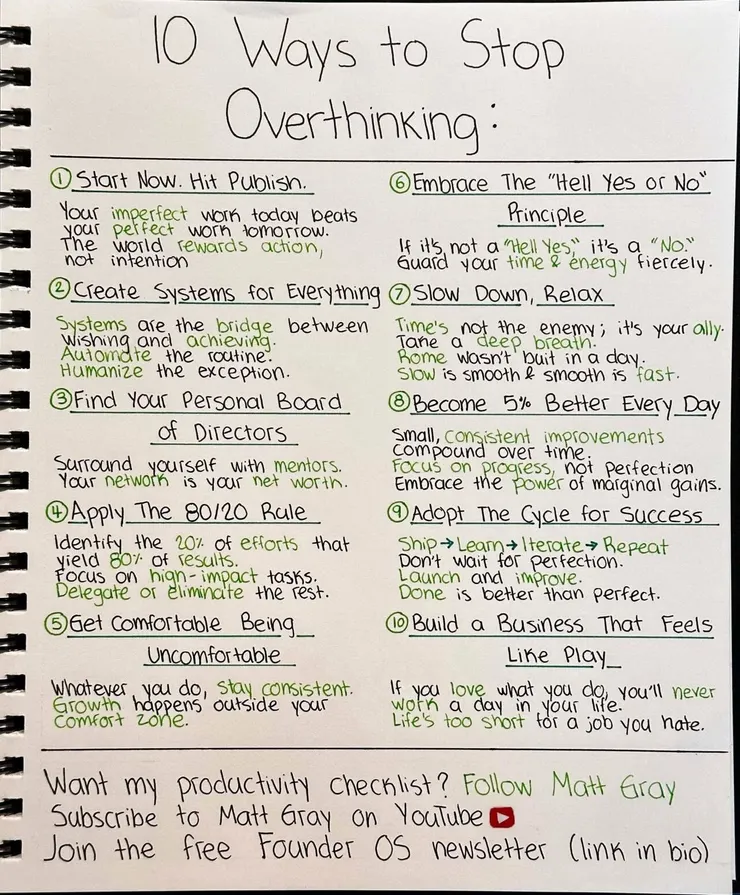 10 Ways to Stop
Overthinking:
① Start Now. Hit Publish.
Your imperfect work today beats
your perfect work tomorrow.
The world rewards action,
not intention
② Create Systems for Everything
Systems are the bridge between
wishing and achieving.
Automate the routine.
Humanize the exception.
③ Find Your Personal Board
of Directors
Surround yourself with mentors.
Your network is your net worth.
④ Apply The 80/20 Rule
Identify the 20% of efforts that
yield 80% of results.
Focus on high-impact tasks.
Delegate or eliminate the rest.
⑤ Get Comfortable Being
Uncomfortable
Whatever you do, stay consistent.
Growth happens outside your
comfort zone.
⑥ Embrace The "Hell Yes or No"
Principle
If it's not a "Hell Yes," it's a "No."
Guard your time & energy fiercely.
⑦ Slow Down, Relax
Time's not the enemy; it's your ally.
Take a deep breath.
Rome wasn't buit in a day.
Slow is smooth & smooth is fast.
⑧ Become 5% Better Every Day
Small, consistent improvements
compound over time.
Focus on progress, not perfection
Embrace the power of marginal gains.
⑨ Adopt The Cycle for Success
Ship→Learn→Iterate→Repeat
Don't wait for perfection.
Launch and improve.
Done is better than perfect.
⑩ Build a Business That Feels
Like Play
If you love what you do, you'll never
work a day in your life.
Life's too short for a job you hate.
Want my productivity checklist? Follow Matt Gray
Subscribe to Matt Gray on YouTube
Join the free Founder OS newsletter (link in bio)